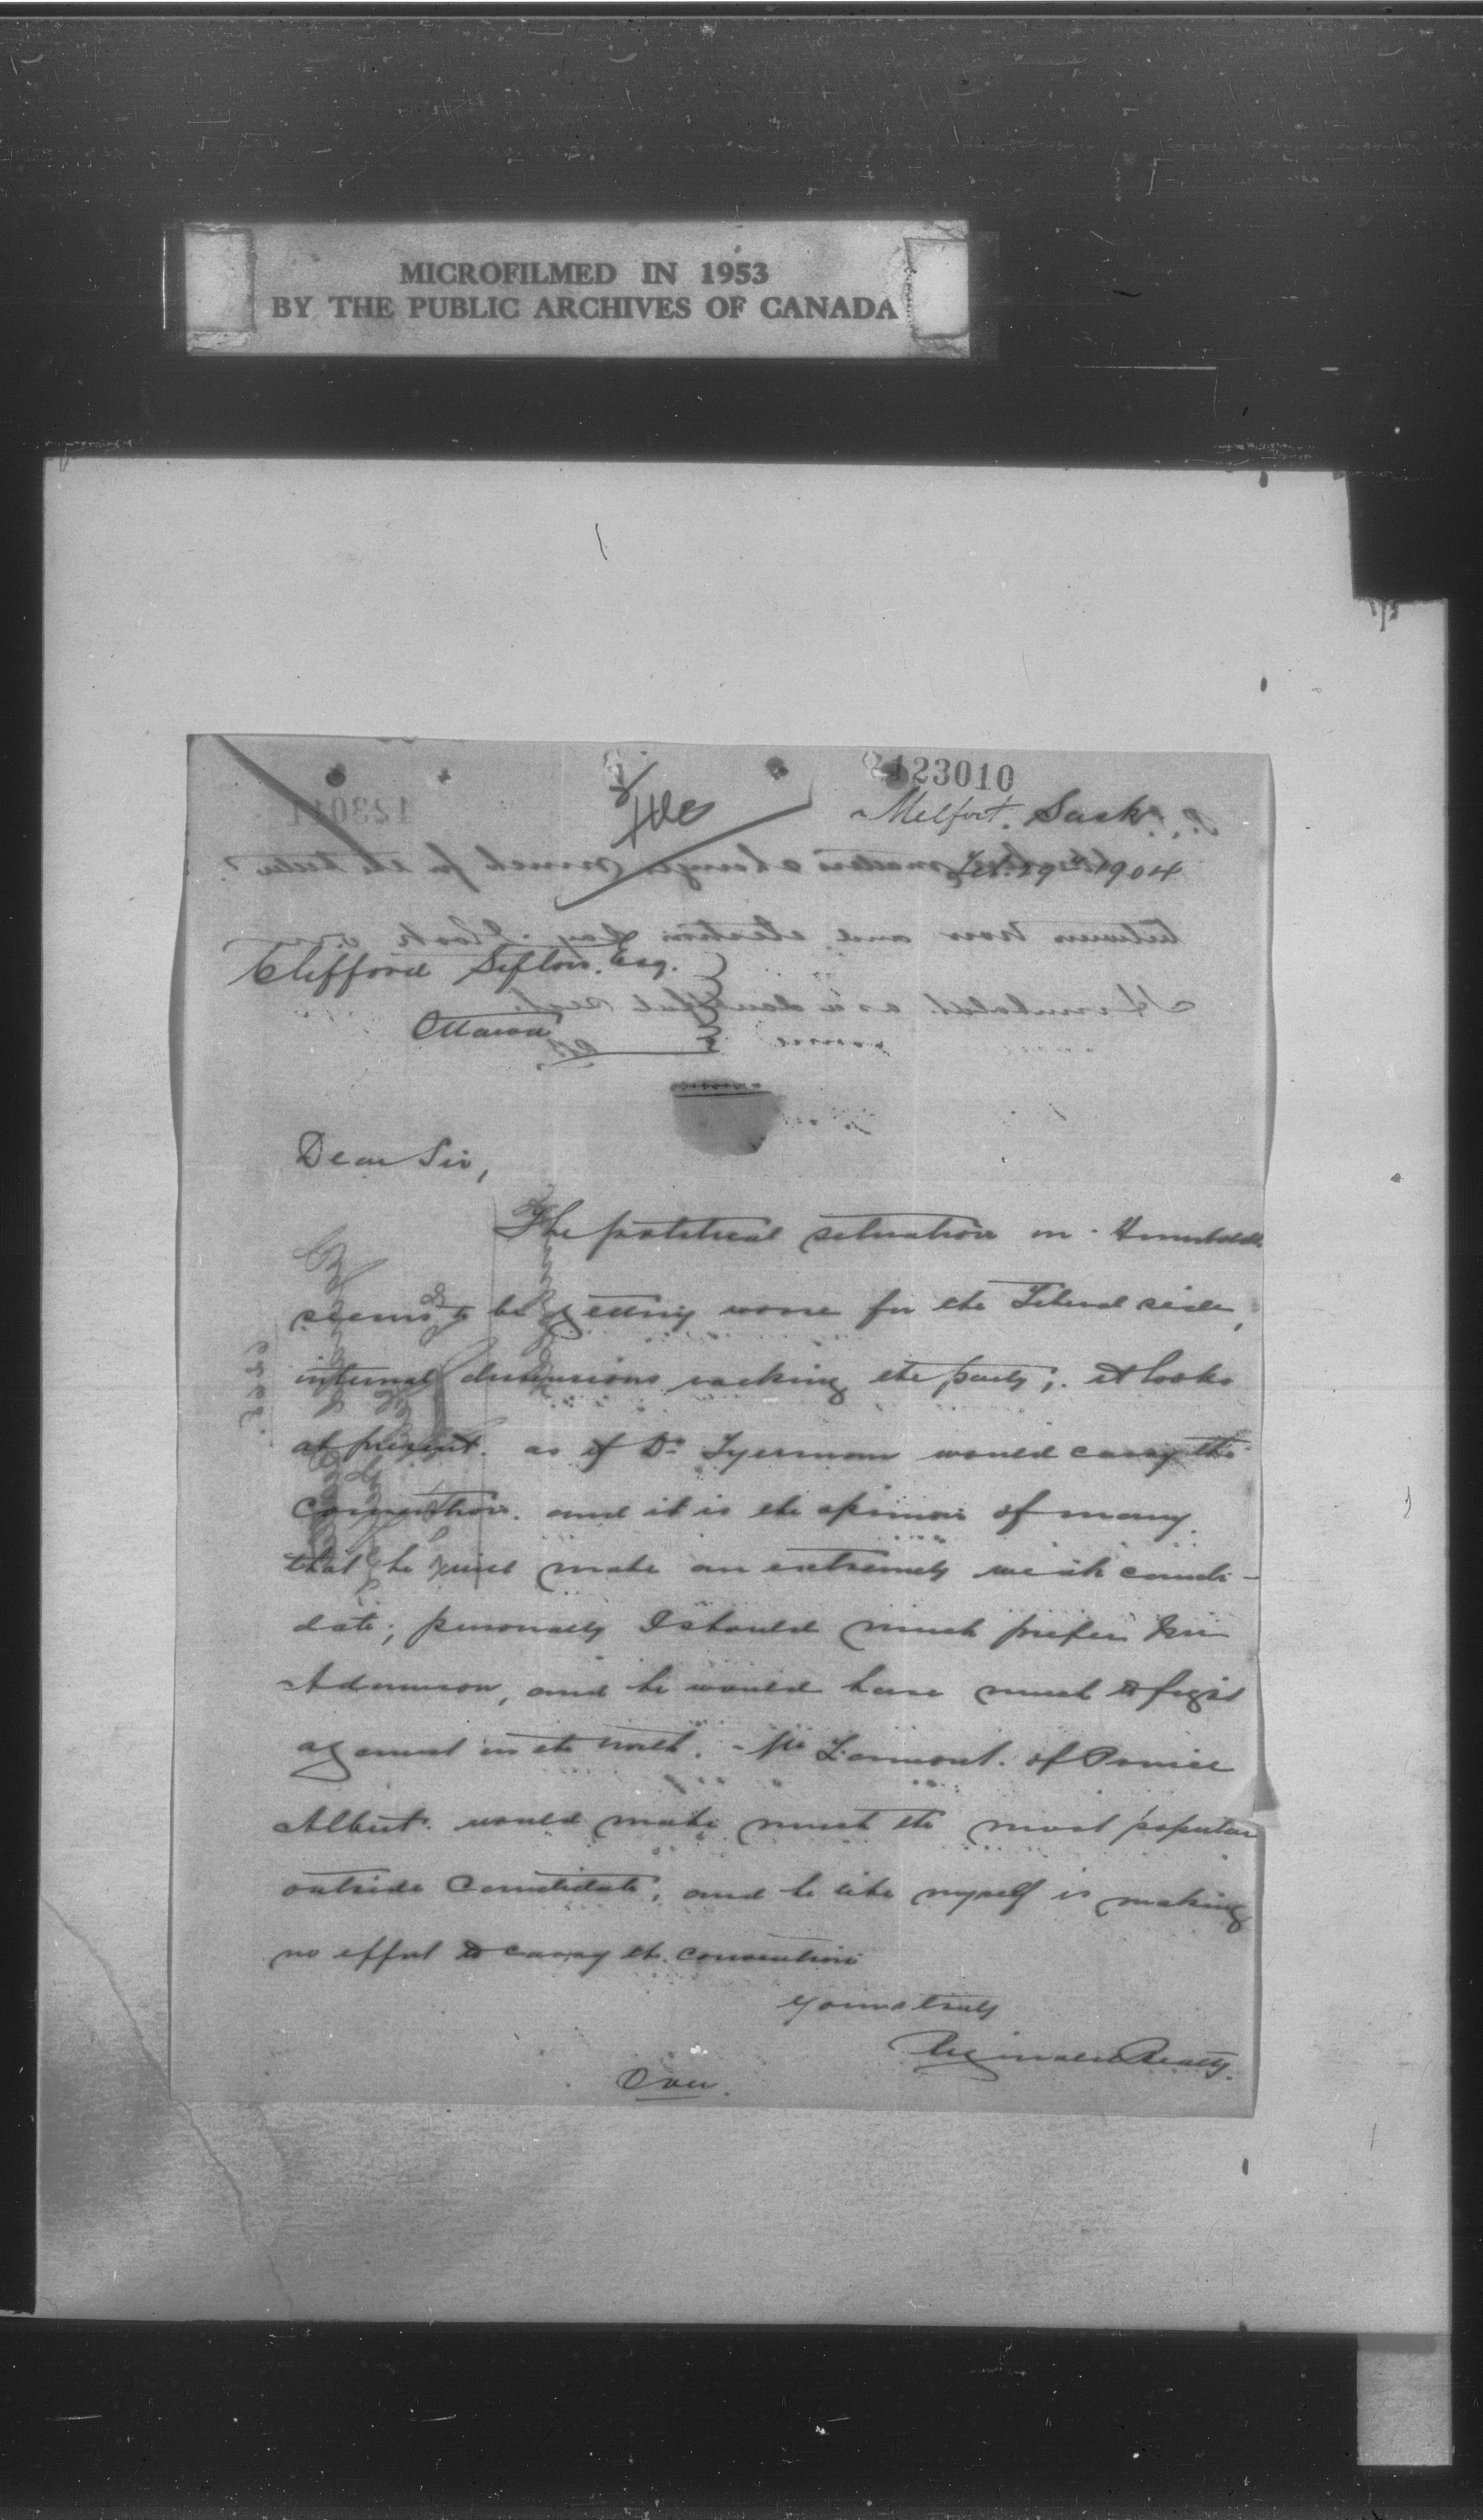 MICROFILMED IN 1953
BY THE PUBLIC ARCHIVES OF CANADA
123010
Melfort. Sask.
Feb. 29th 1904
Clifford Sifton. Esq.
Ottawa
Dear Sir,
The political situation in Humboldt
seems to be getting worse for the Liberal side,
internal dissensions racking the party; it looks
at present. as if Dr Tyerman would carry the
convention. and it is the opinion of many.
that he will make an extremely weak candi-
date; personally I should much prefer Mr
Adamson, and he would have much to fight
against in the north. Mr Lamont. of Prince
Albert. would make much the most popular
outside candidate, and he like myself is making
no effort to carry the convention
Yours truly
Reginald Beatty.
Over.